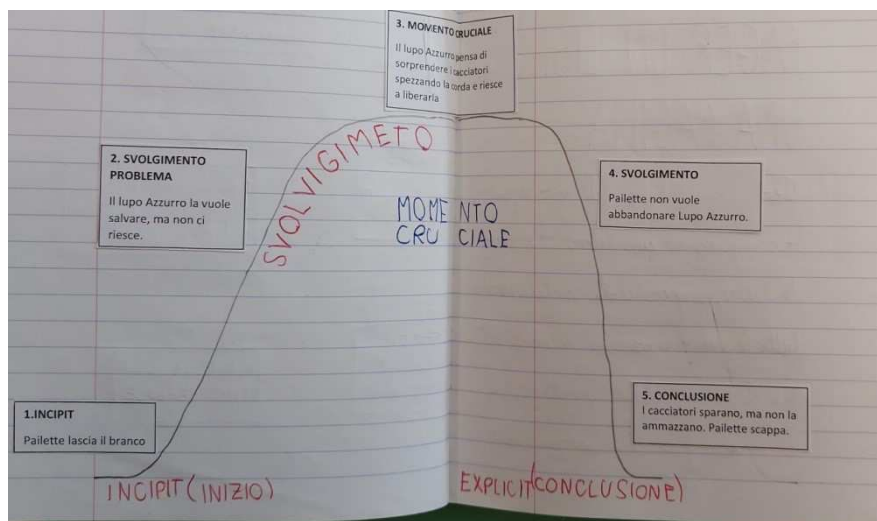 3. MOMENTO CRUCIALE
Il lupo Azzurro pensa di
sorprendere i cacciatori
spezzando la corda e riesce
a liberarla
SVOLVIGIMETO
2. SVOLGIMENTO
PROBLEMA
Il lupo Azzurro la vuole
salvare, ma non ci
riesce.
MOMENTO
CRUCIALE
4. SVOLGIMENTO
Pailette non vuole
abbandonare Lupo Azzurro.
1.INCIPIT
Pailette lascia il branco
5. CONCLUSIONE
I cacciatori sparano, ma non la
ammazzano. Pailette scappa.
INCIPIT (INIZIO)
EXPLICIT (CONCLUSIONE)